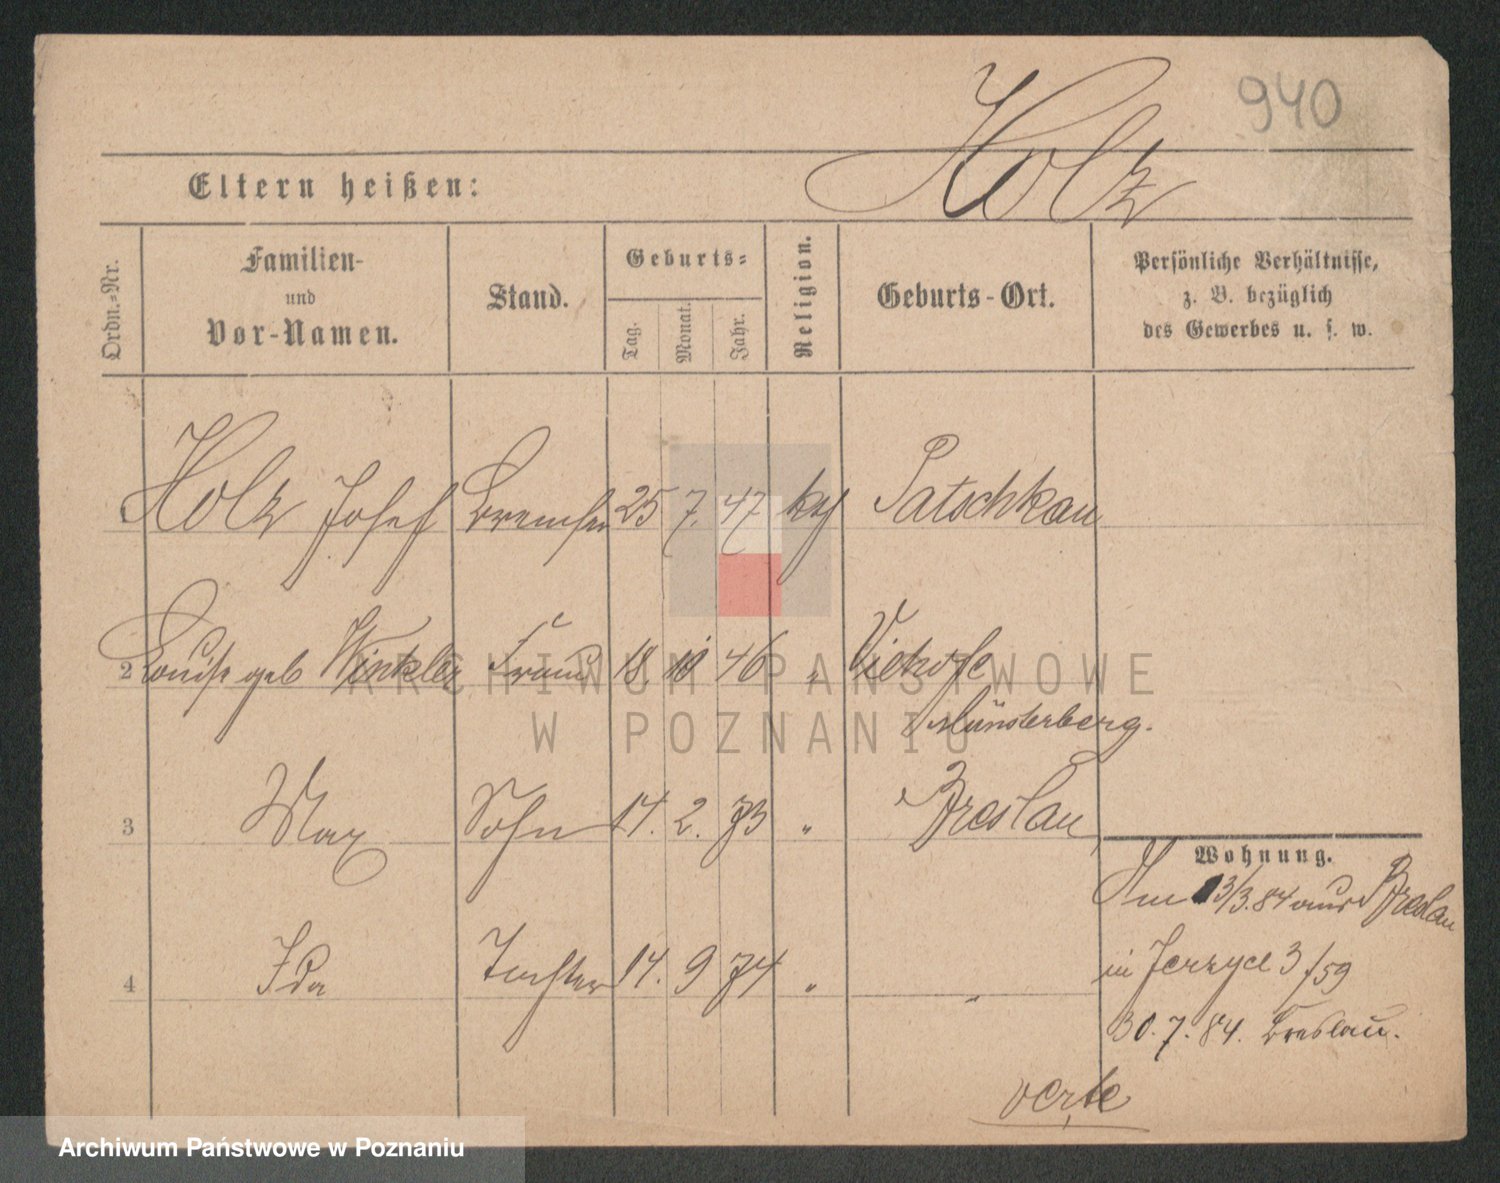 940
Holz
Eltern heißen:
Ordn.=Nr.
Familien-
und
Vor-Namen.
Stand.
Geburts=
Tag.
Monat.
Jahr.
Religion.
Geburts-Ort.
Persönliche Verhältnisse,
z. B. bezüglich
des Gewerbes u. s. w.
1 Holz Josef Bremser 25 7. 47 kth Patschkau
2 Louise geb Winkler Frau 18. 10 46 "
Münsterberg.
3 Max Sohn 14. 2. 73 " Breslau
Wohnung.
Am 13/3. 84 aus Breslau
4 Ida Tochter 14. 9 74 " "
in Jerzyce 3/59
30. 7. 84. Breslau.
verte
ARCHIWUM PAŃSTWOWE
W POZNANIU
Archiwum Państwowe w Poznaniu